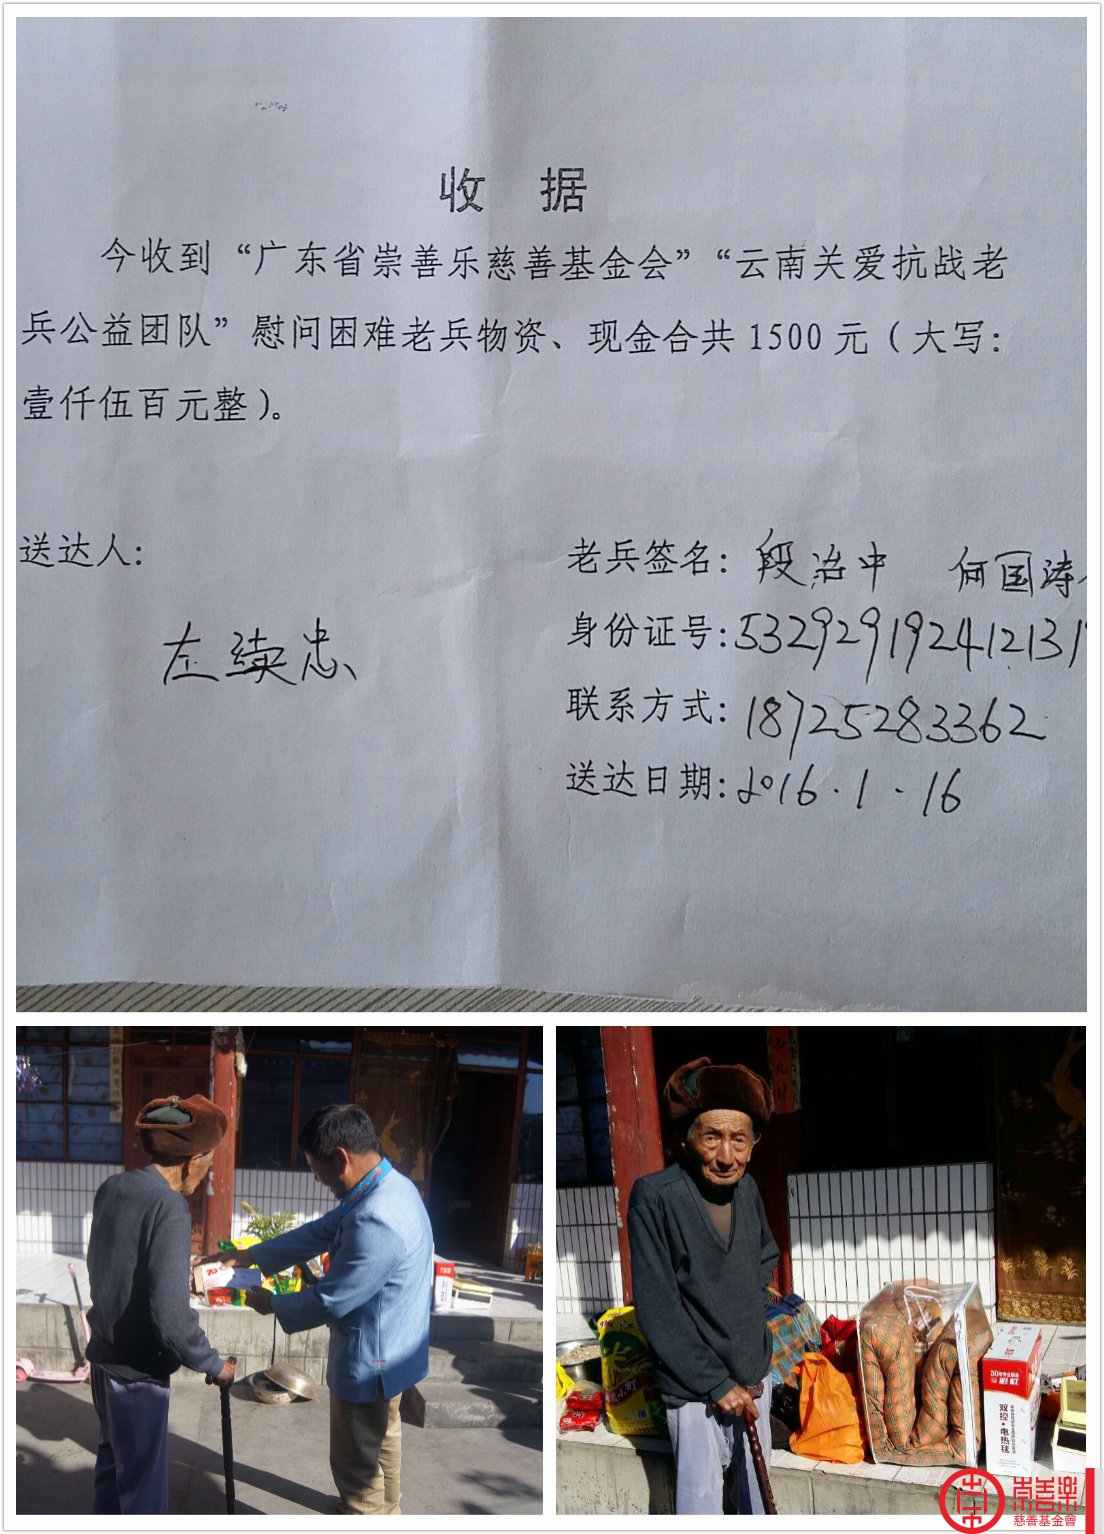 收 据
今收到“广东省崇善乐慈善基金会”“云南关爱抗战老
兵公益团队”慰问困难老兵物资、现金合共1500元（大写：
壹仟伍百元整）。
送达人：
左续忠
老兵签名：段治中 何国涛
身份证号：5329291924121319
联系方式：18725283362
送达日期：2016.1.16
彩虹
双控·电热毯
崇善樂
慈善基金會